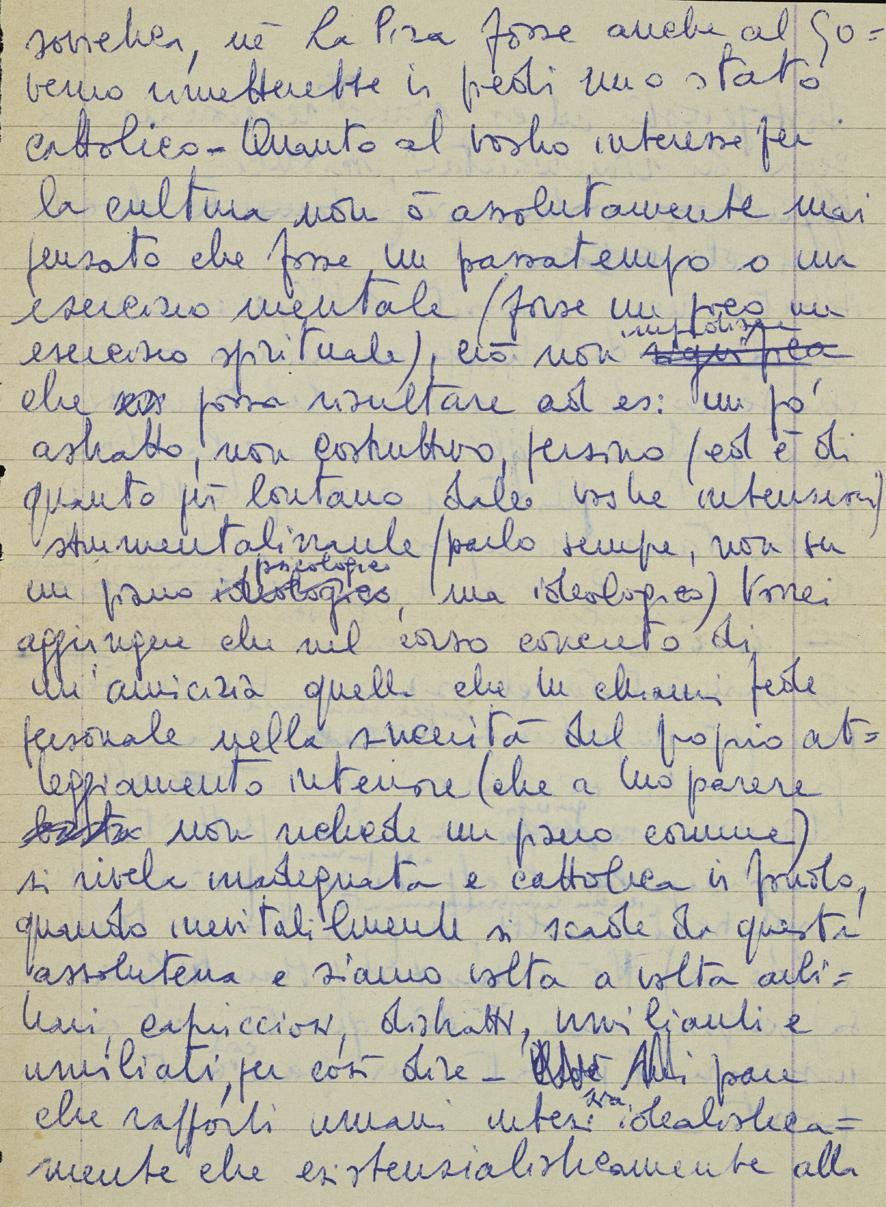 sovietica, né La Pira fosse anche al Go=
verno rimetterebbe in piedi uno stato
cattolico – Quanto al vostro interesse per
la cultura non ò assolutamente mai
pensato che fosse un passatempo o un
esercizio mentale (forse un poco un
esercizio spirituale), ciò non impedisce significa
che possa risultare ad es: un po'
astratto, non costruttivo, persino (ed è di
quanto più lontano dalle vostre intenzioni)
strumentalizzante (parlo sempre, non su
un piano ideologico psicologico, ma ideologico) Vorrei
aggiungere che nel corso concreto di
un'amicizia quella che tu chiami fede
personale nella sincerità del proprio at=
teggiamento interiore (che a tuo parere
basta non richiede un piano comune)
si rivela inadeguata e cattolica in fondo,
quando inevitabilmente si scade da questa
assolutezza e siamo volta a volta arbi=
trari, capricciosi, distratti, umilianti e
umiliati, per così dire – Mi pare
che rapporti umani intesi sia idealistica=
mente che esistenzialisticamente alla